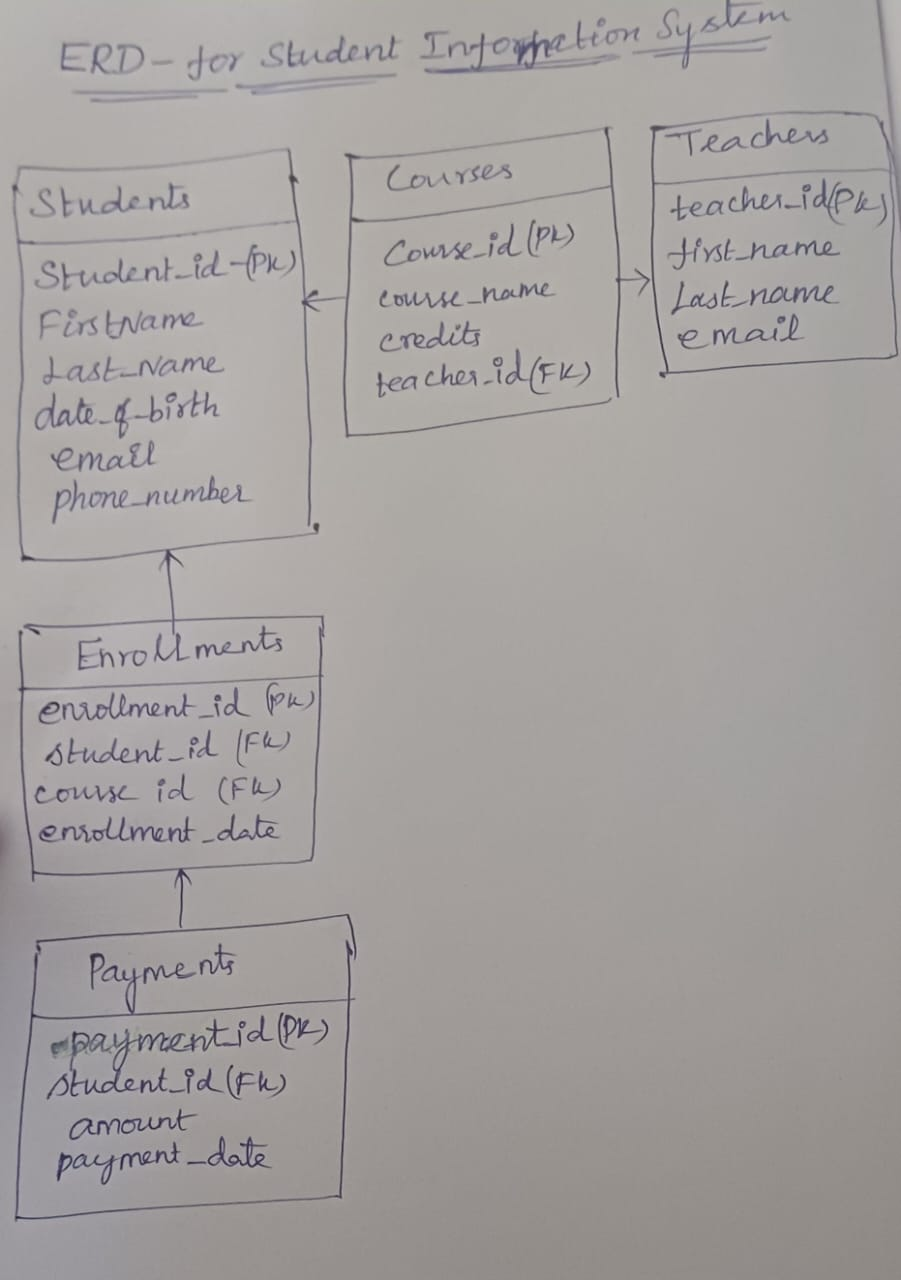 ERD - for Student Information System
Students
Student_id-(PK)
FirstName
Last_Name
date_of_birth
email
phone_number
Courses
Course_id (PK)
course_name
credits
teacher_id (FK)
Teachers
teacher_id(PK)
first_name
Last_name
email
Enrollments
enrollment_id (PK)
student_id (FK)
course id (FK)
enrollment_date
Payments
payment_id(PK)
student_id(FK)
amount
payment_date